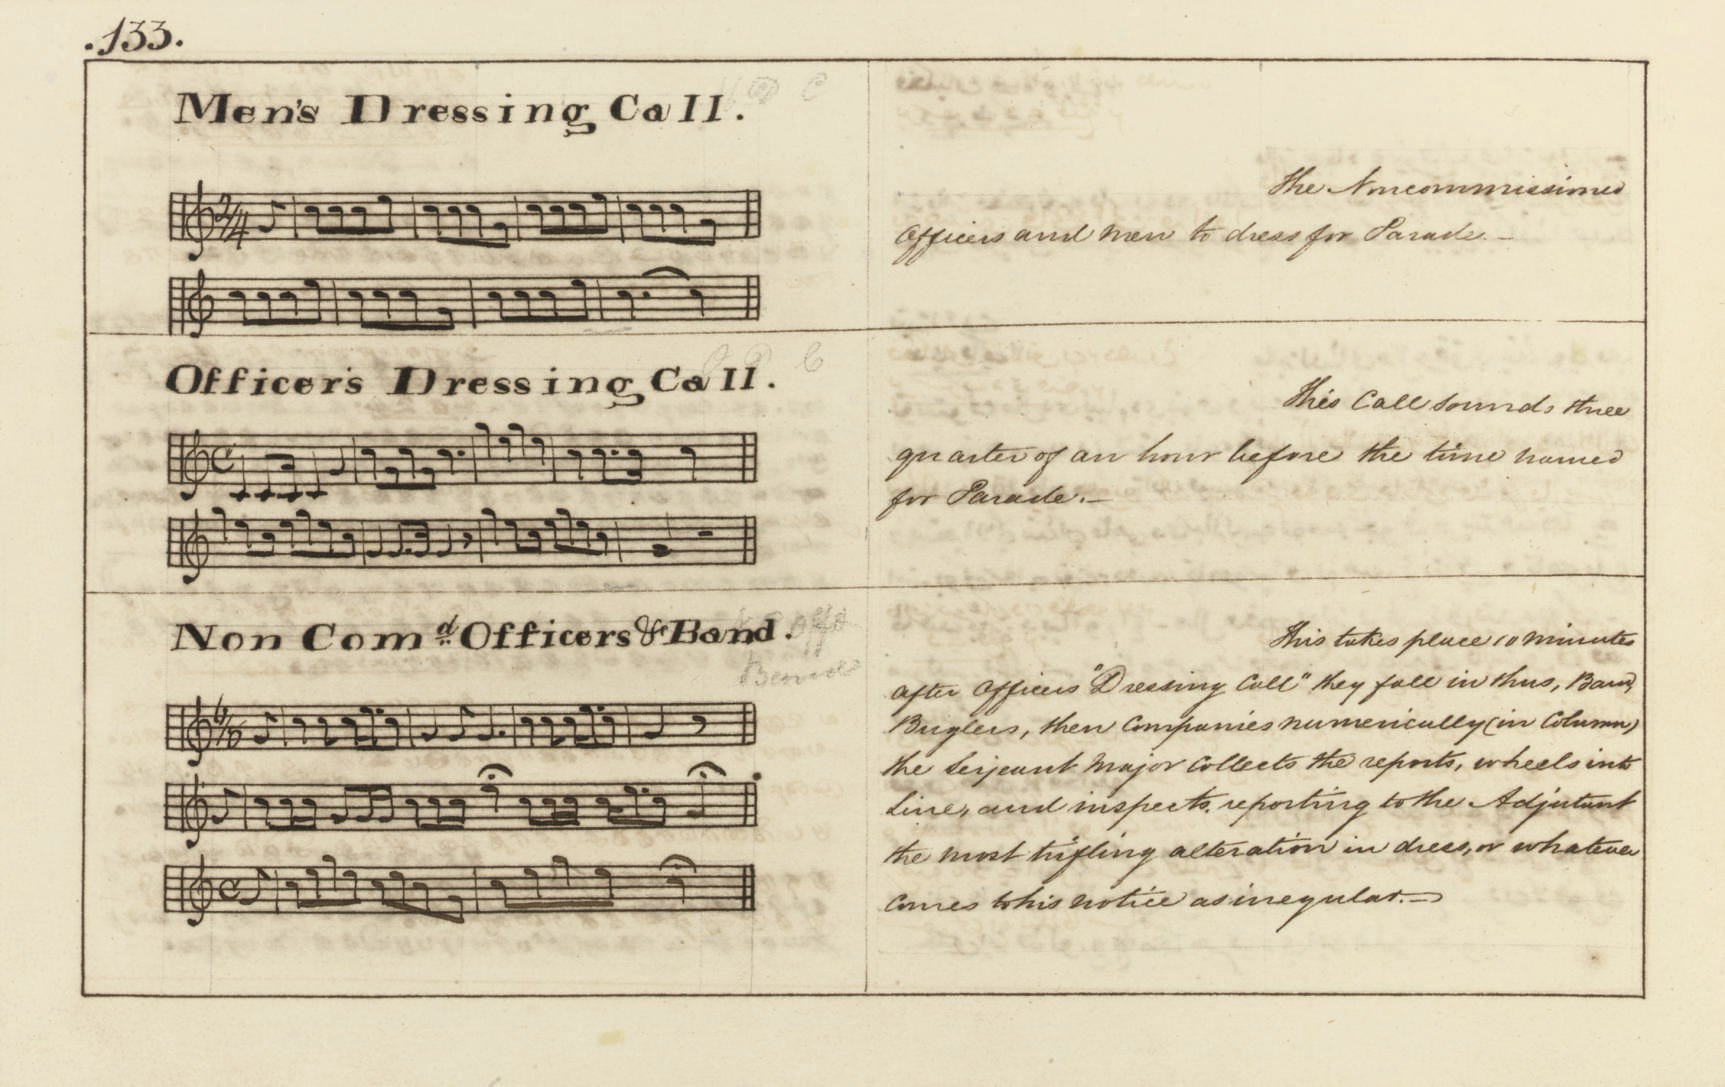 .133.
Men's Dressing Call.
The Noncommissioned
Officers and Men to dress for Parade.—
Officer's Dressing Call.
This Call sounds three
quarter of an hour before the time named
for Parade.—
Non Comd. Officers & Band.
This takes place 10 minutes
after Officers "Dressing Call" they fall in thus, Band,
Buglers, then Companies numerically (in Column)
the Serjeant Major collects the reports, wheels into
Line, and inspects, reporting to the Adjutant
the most trifling alteration in dress, or whatever
comes to his notice as irregular.—